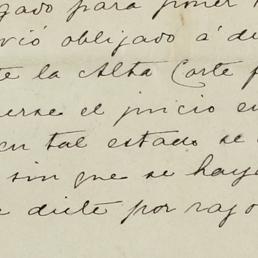 gado para poner
vió obligado á di
te la Alta Corte
erse el juicio en
en tal estado se
sin que se haya
e dicte por razo